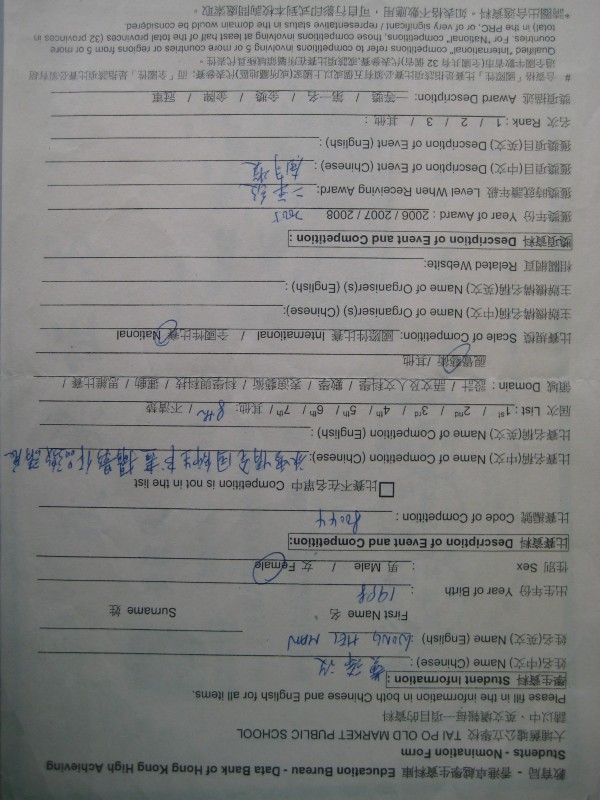 教育局 - 香港卓越學生資料庫 Education Bureau - Data Bank of Hong Kong High Achieving
Students - Nomination Form
大埔舊墟公立學校 TAI PO OLD MARKET PUBLIC SCHOOL
請以中、英文填報每一項目的資料
Please fill in the information in both Chinese and English for all items.
學生資料 Student Information :
姓名(中文) Name (Chinese) :
姓名(英文) Name (English) WONG HEI MAN
First Name 名 Surname 姓
出生年份 Year of Birth : 1998
性別 Sex : 男 Male / 女 Female
比賽資料 Description of Event and Competition:
比賽編號 Code of Competition : 80044
比賽不在名單中 Competition is not in the list
比賽名稱(中文) Name of Competition (Chinese):
比賽名稱(英文) Name of Competition (English) :
屆次 List : 1st / 2nd / 3rd / 4th / 5th / 6th / 7th / 其他: 8th / 不清楚
領域 Domain : 設計 / 語文及人文科學 / 數學 / 表演藝術 / 科學與科技 / 運動 / 思維比賽 /
視覺藝術 / 其他
比賽規模 Scale of Competition: 國際性比賽 International / 全國性比賽 National
主辦機構名稱(中文) Name of Organiser(s) (Chinese):
主辦機構名稱(英文) Name of Organiser(s) (English) :
相關網頁 Related Website:
獎項資料 Description of Event and Competition :
獲獎年份 Year of Award : 2006 / 2007 / 2008 2005
獲獎時就讀年級 Level When Receiving Award:
獲獎項目(中文) Description of Event (Chinese) :
獲獎項目(英文) Description of Event (English) :
名次 Rank : 1 / 2 / 3 / 其他 :
獎項描述 Award Description: 一等獎 / 第一名 / 金獎 / 金牌 / 冠軍
Qualified "International" competitions refer to competitions involving 5 or more countries or regions from 5 or more
countries. For "National" competitions, those competitions involving at least half of the total provinces (32 provinces in
total) in the PRC, or of very significant / representative status in the domain would be considered.
*請圈出合適資料。如表格不敷應用，可自行影印或到本校詢問處索取。